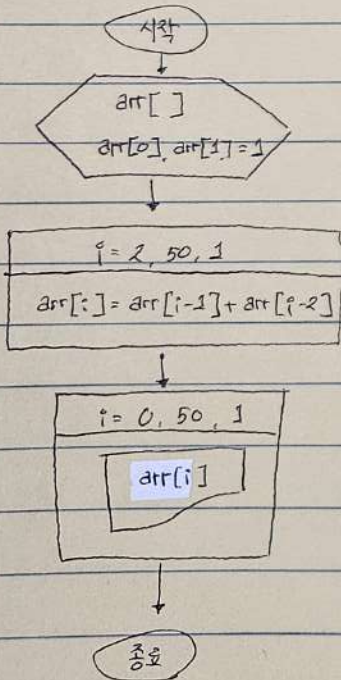 시작
arr[ ]
arr[0], arr[1] = 1
i = 2, 50, 1
arr[i] = arr[i-1] + arr[i-2]
i = 0, 50, 1
arr[i]
종료